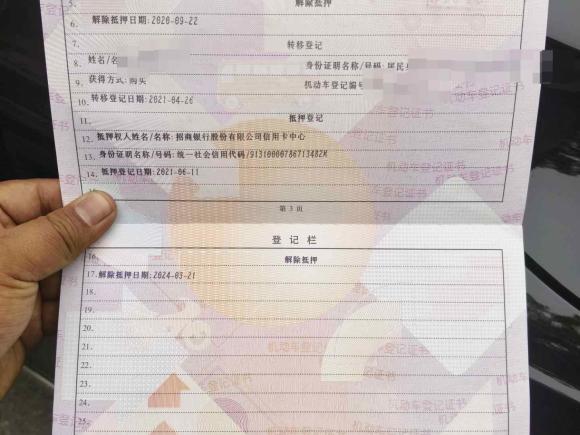 5. 解除抵押
6. 解除抵押日期:2020-09-22
7. 转移登记
8. 姓名/名 身份证明名称/号码:居民身
9. 获得方式:购买 机动车登记编号
10. 转移登记日期:2021-04-26
11. 抵押登记
12. 抵押权人姓名/名称:招商银行股份有限公司信用卡中心
13. 身份证明名称/号码:统一社会信用代码/91310000786713482K
14. 抵押登记日期:2021-06-11
15.
第 3 页
登 记 栏
16. 解除抵押
17. 解除抵押日期:2024-03-21
18.
19.
20.
21.
22.
23.
24.
25.
机动车登记证书